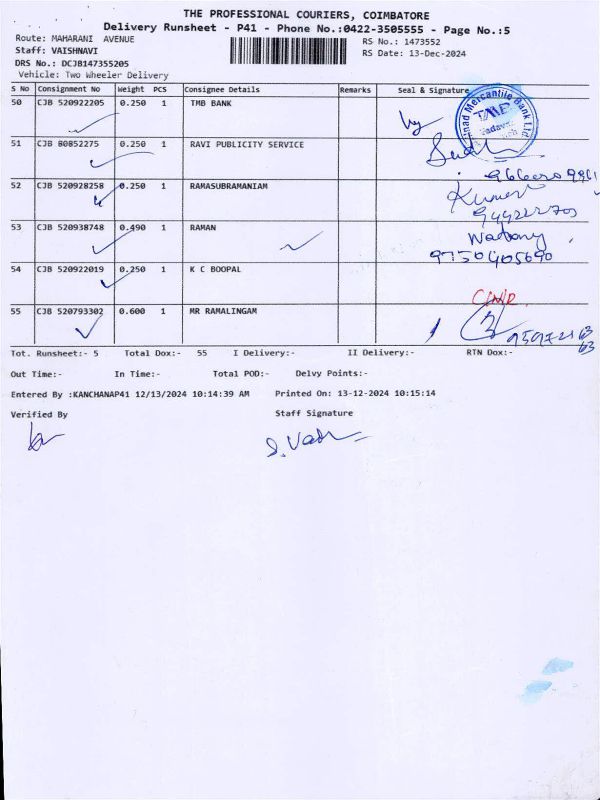 THE PROFESSIONAL COURIERS, COIMBATORE
Delivery Runsheet - P41 - Phone No.:0422-3505555 - Page No.:5
Route: MAHARANI AVENUE
RS No.: 1473552
Staff: VAISHNAVI
RS Date: 13-Dec-2024
DRS No.: DCJB147355205
Vehicle: Two Wheeler Delivery
S No Consignment No Weight PCS Consignee Details Remarks Seal & Signature
50 CJB 520922205 0.250 1 TMB BANK
51 CJB 80852275 0.250 1 RAVI PUBLICITY SERVICE
52 CJB 520928258 0.250 1 RAMASUBRAMANIAM
Kumar
53 CJB 520938748 0.490 1 RAMAN
9750405690
54 CJB 520922019 0.250 1 K C BOOPAL
55 CJB 520793302 0.600 1 MR RAMALINGAM
Tot. Runsheet:- 5 Total Dox:- 55 I Delivery:- II Delivery:- RTN Dox:-
Out Time:- In Time:- Total POD:- Delvy Points:-
Entered By :KANCHANAP41 12/13/2024 10:14:39 AM Printed On: 13-12-2024 10:15:14
Verified By Staff Signature